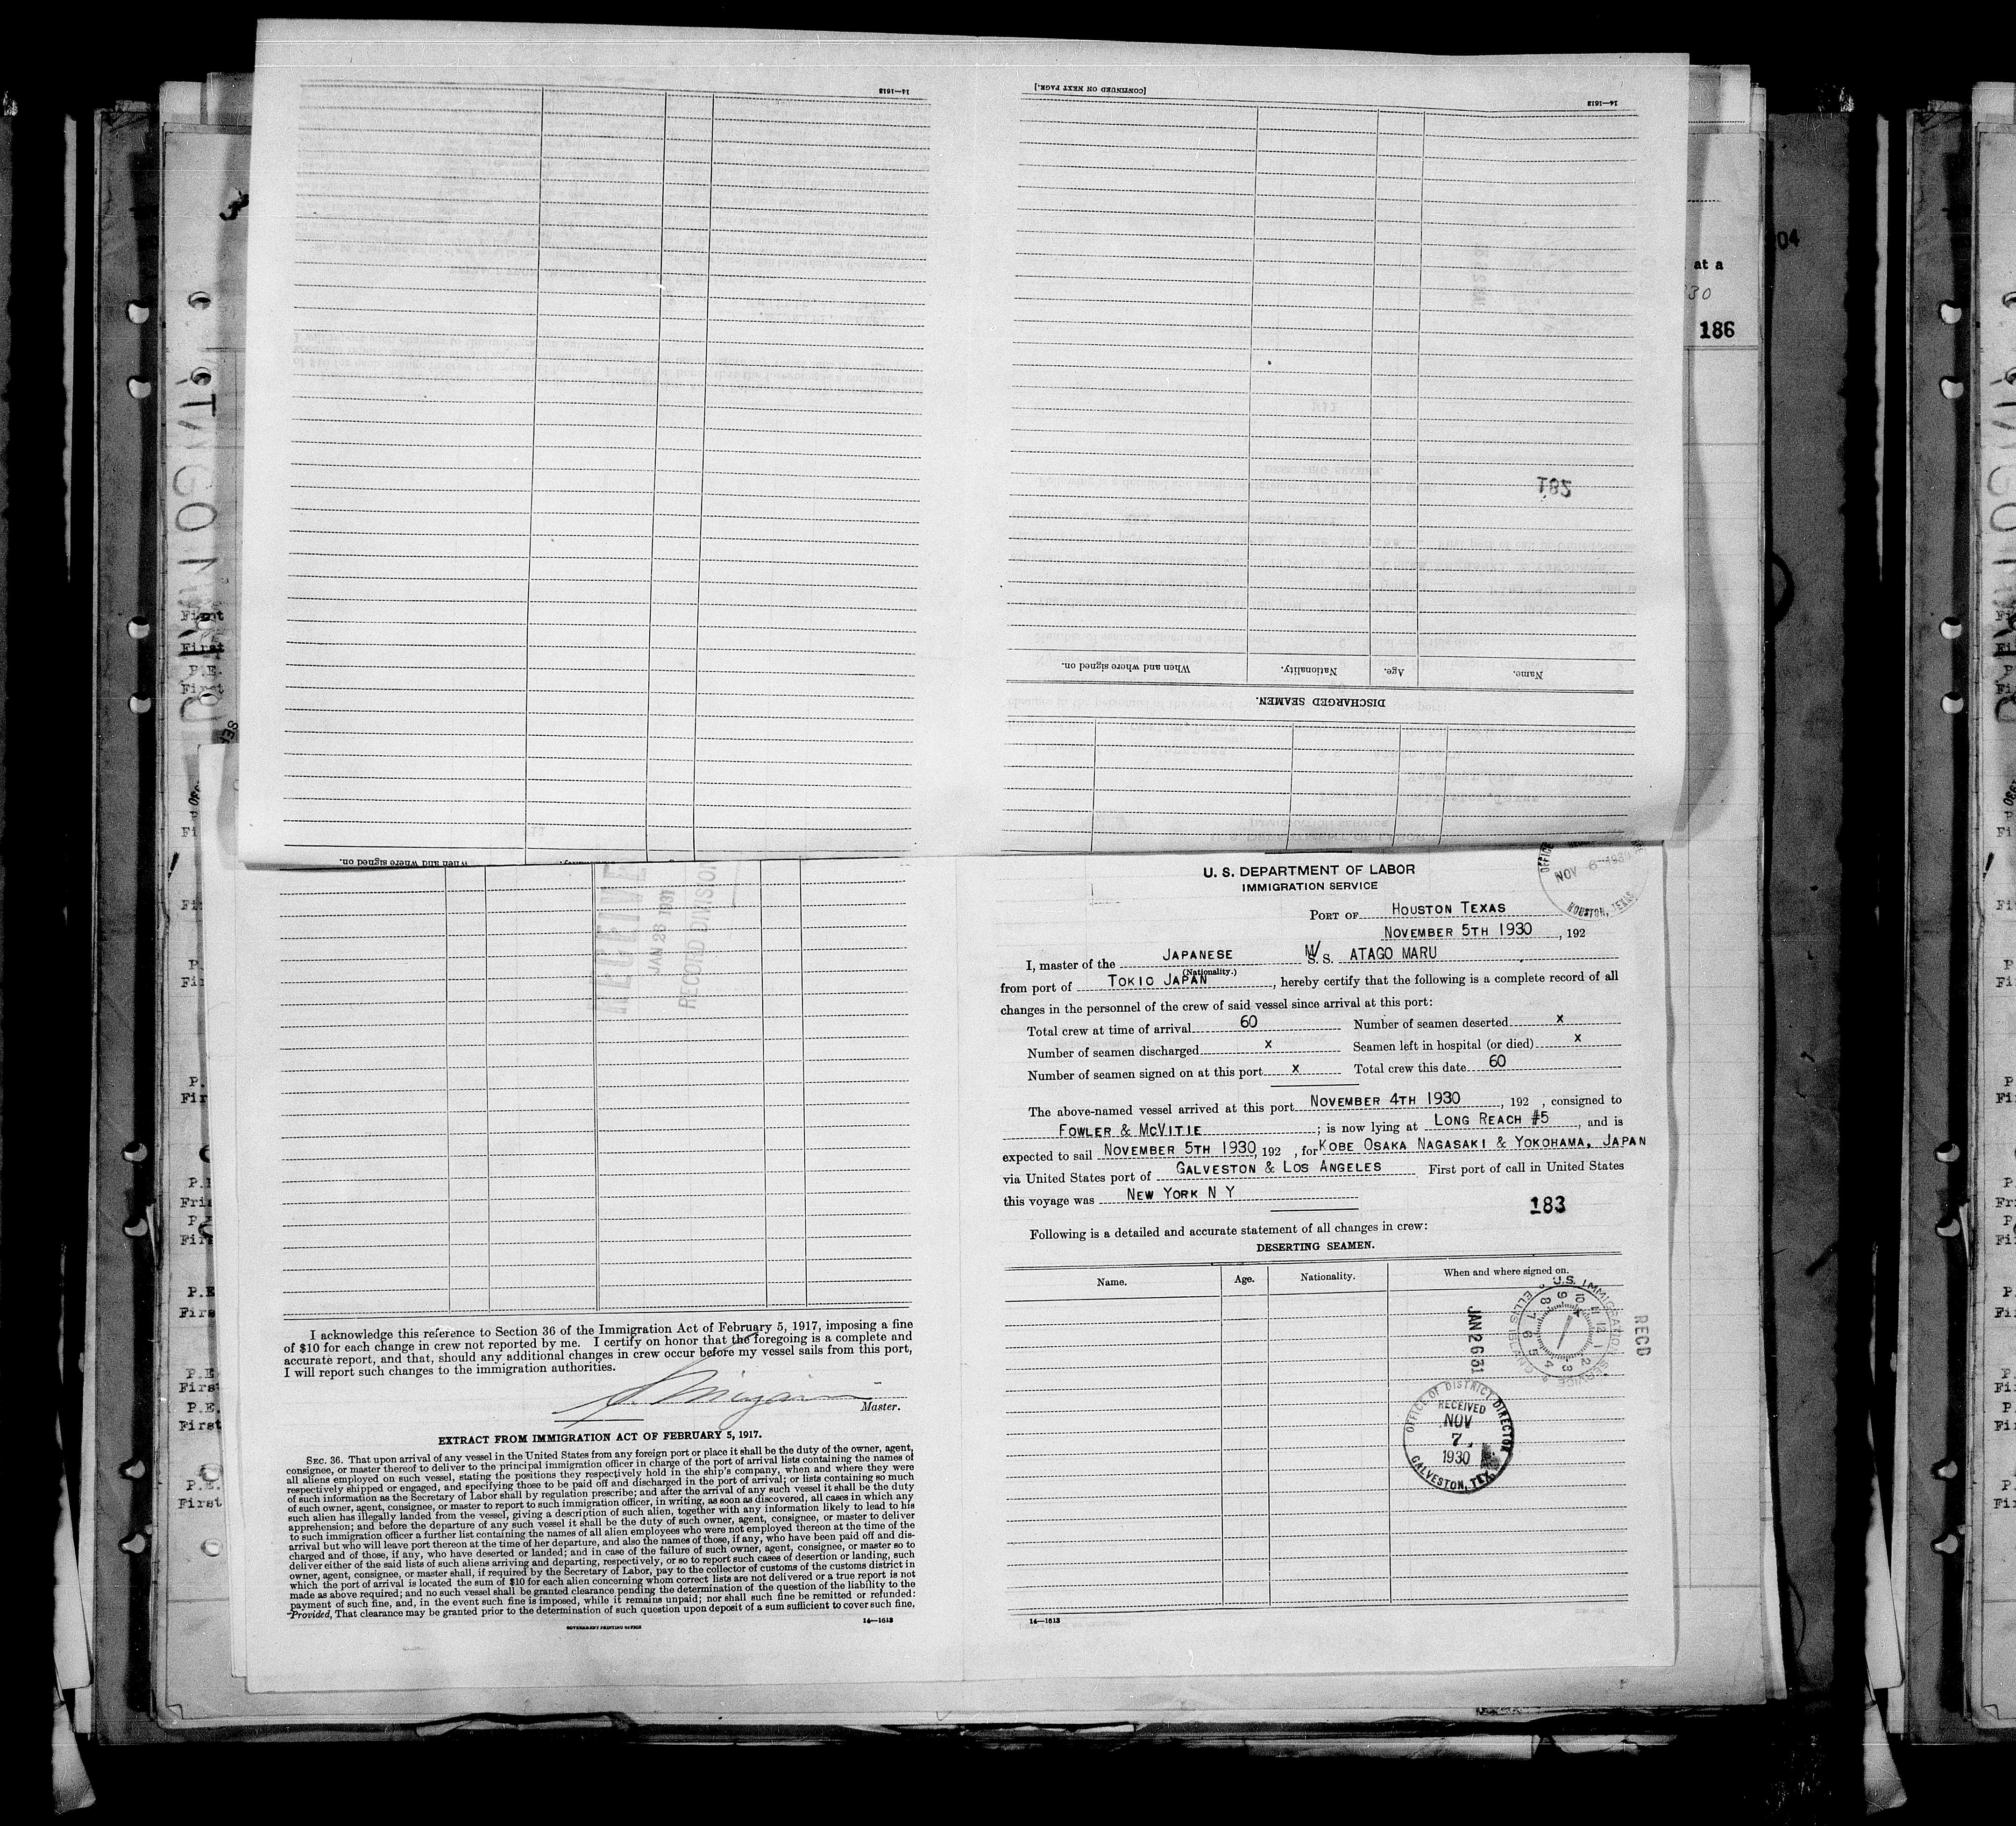 14—1613
[CONTINUED ON NEXT PAGE.]
14—1613
182
When and where signed on.
Nationality.
Age.
Name.
DISCHARGED SEAMEN.
When and where signed on.
at a
30
186
04
First
First
P.E.
First
RECEIVED
JAN 26 1931
RECORD DIVISION
I acknowledge this reference to Section 36 of the Immigration Act of February 5, 1917, imposing a fine
of $10 for each change in crew not reported by me. I certify on honor that the foregoing is a complete and
accurate report, and that, should any additional changes in crew occur before my vessel sails from this port,
I will report such changes to the immigration authorities.
Master.
EXTRACT FROM IMMIGRATION ACT OF FEBRUARY 5, 1917.
SEC. 36. That upon arrival of any vessel in the United States from any foreign port or place it shall be the duty of the owner, agent,
consignee, or master thereof to deliver to the principal immigration officer in charge of the port of arrival lists containing the names of
all aliens employed on such vessel, stating the positions they respectively hold in the ship's company, when and where they were
respectively shipped or engaged, and specifying those to be paid off and discharged in the port of arrival; or lists containing so much
of such information as the Secretary of Labor shall by regulation prescribe; and after the arrival of any such vessel it shall be the duty
of such owner, agent, consignee, or master to report to such immigration officer, in writing, as soon as discovered, all cases in which any
such alien has illegally landed from the vessel, giving a description of such alien, together with any information likely to lead to his
apprehension; and before the departure of any such vessel it shall be the duty of such owner, agent, consignee, or master to deliver
to such immigration officer a further list containing the names of all alien employees who were not employed thereon at the time of the
arrival but who will leave port thereon at the time of her departure, and also the names of those, if any, who have been paid off and dis-
charged and of those, if any, who have deserted or landed; and in case of the failure of such owner, agent, consignee, or master so to
deliver either of the said lists of such aliens arriving and departing, respectively, or so to report such cases of desertion or landing, such
owner, agent, consignee, or master shall, if required by the Secretary of Labor, pay to the collector of customs of the customs district in
which the port of arrival is located the sum of $10 for each alien concerning whom correct lists are not delivered or a true report is not
made as above required; and no such vessel shall be granted clearance pending the determination of the question of the liability to the
payment of such fine, and, in the event such fine is imposed, while it remains unpaid; nor shall such fine be remitted or refunded:
Provided, That clearance may be granted prior to the determination of such question upon deposit of a sum sufficient to cover such fine.
GOVERNMENT PRINTING OFFICE
14—1613
U. S. DEPARTMENT OF LABOR
IMMIGRATION SERVICE
OFFICE
NOV 6 1930
HOUSTON, TEXAS
PORT OF HOUSTON TEXAS
NOVEMBER 5TH 1930, 192
I, master of the JAPANESE M/ S. S. ATAGO MARU
(Nationality.)
from port of TOKIO JAPAN, hereby certify that the following is a complete record of all
changes in the personnel of the crew of said vessel since arrival at this port:
Total crew at time of arrival 60 Number of seamen deserted x
Number of seamen discharged x Seamen left in hospital (or died) x
Number of seamen signed on at this port x Total crew this date 60
The above-named vessel arrived at this port NOVEMBER 4TH 1930, 192 , consigned to
FOWLER & MCVITIE ; is now lying at LONG REACH #5, and is
expected to sail NOVEMBER 5TH 1930, 192 , for KOBE OSAKA NAGASAKI & YOKOHAMA, JAPAN
via United States port of GALVESTON & LOS ANGELES First port of call in United States
this voyage was NEW YORK N Y
183
Following is a detailed and accurate statement of all changes in crew:
DESERTING SEAMEN.
Name. Age. Nationality. When and where signed on.
U.S. IMMIGRATION SERVICE
ELLIS ISLAND
JAN 26 31
RECD
OFFICE OF DISTRICT DIRECTOR
RECEIVED
NOV
7
1930
GALVESTON, TEX.
14—1613